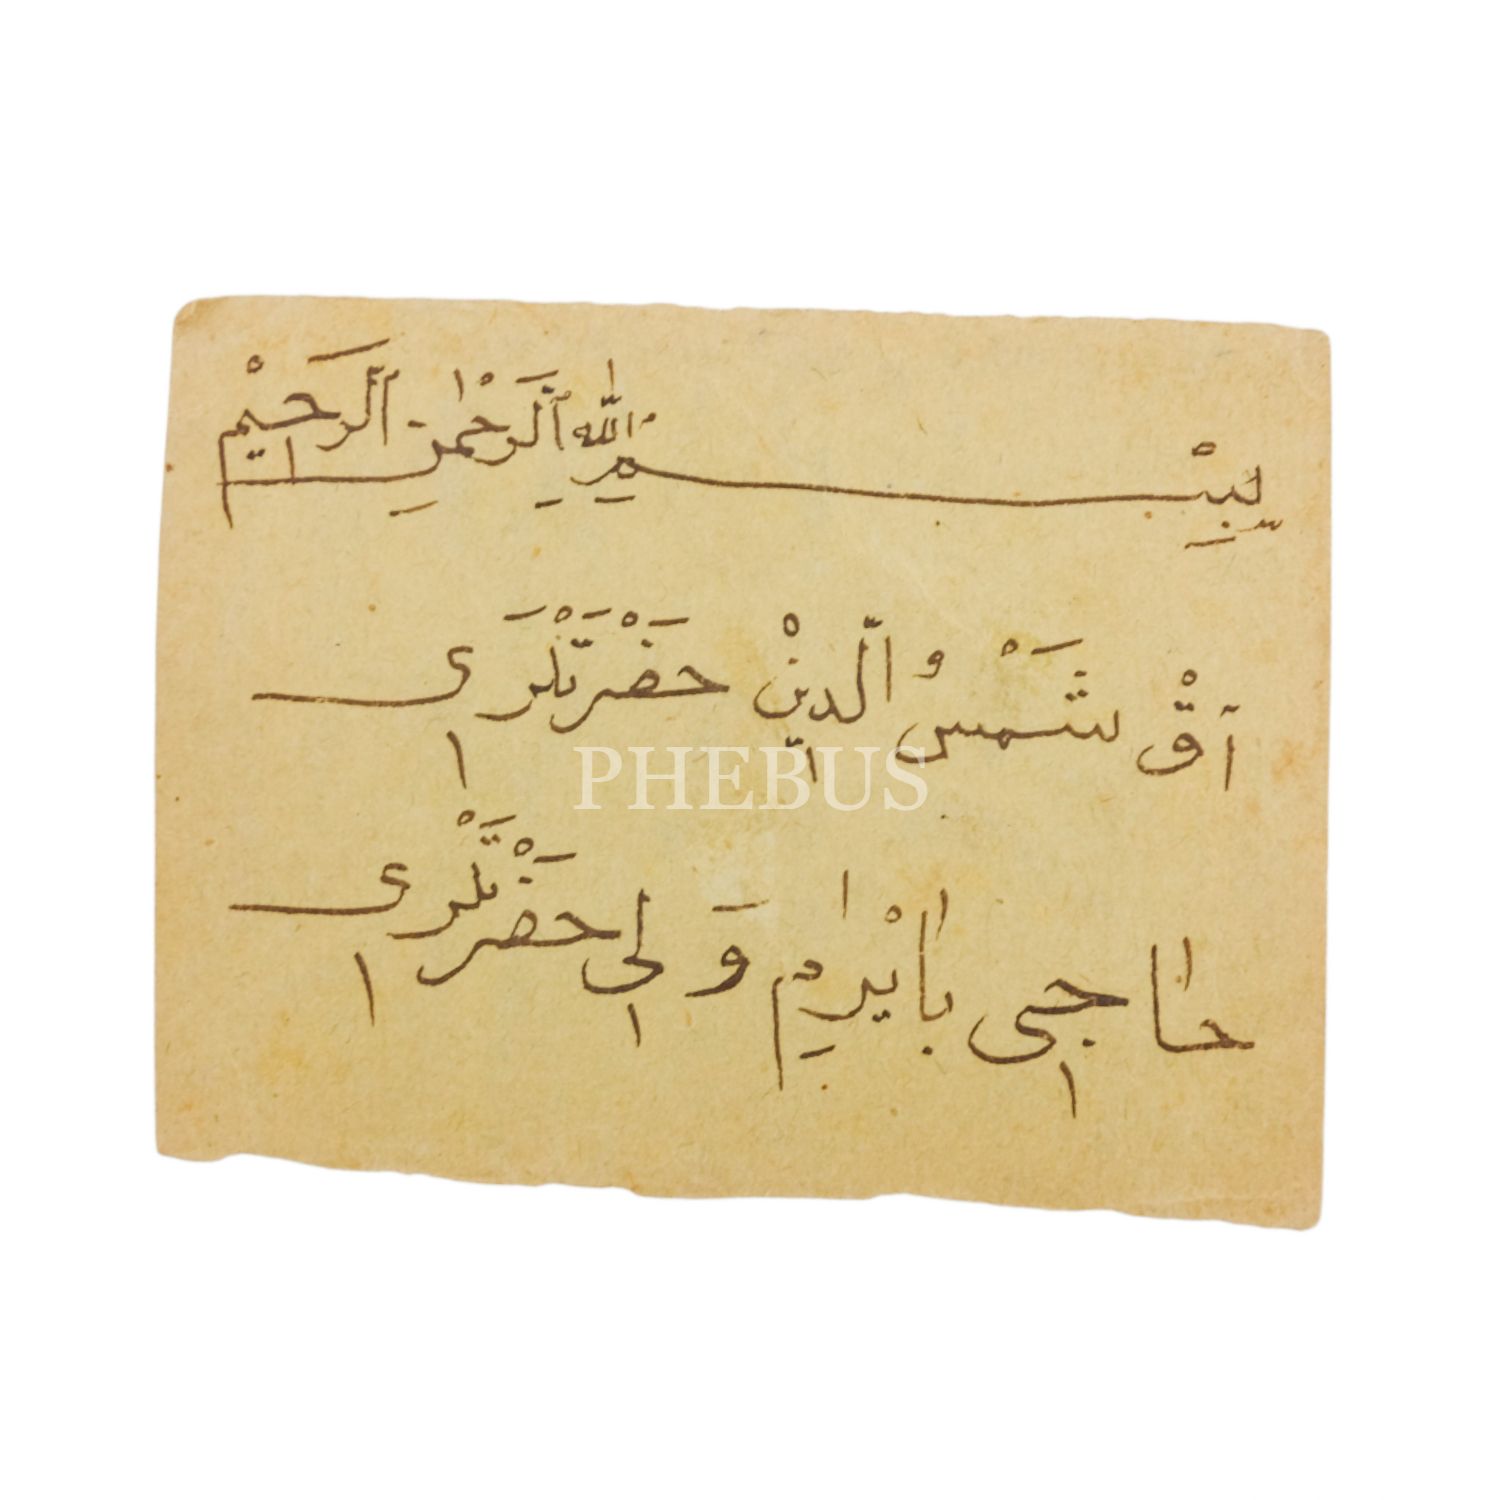 بِسْمِ اللّٰهِ الرَّحْمٰنِ الرَّحِيْمِ
آقْ شَمْسُ الدّٖينْ حَضْرَتْلَرٖى
PHEBUS
حَاجٖى بَايْرَامِ وَلٖى حَضْرَتْلَرٖى